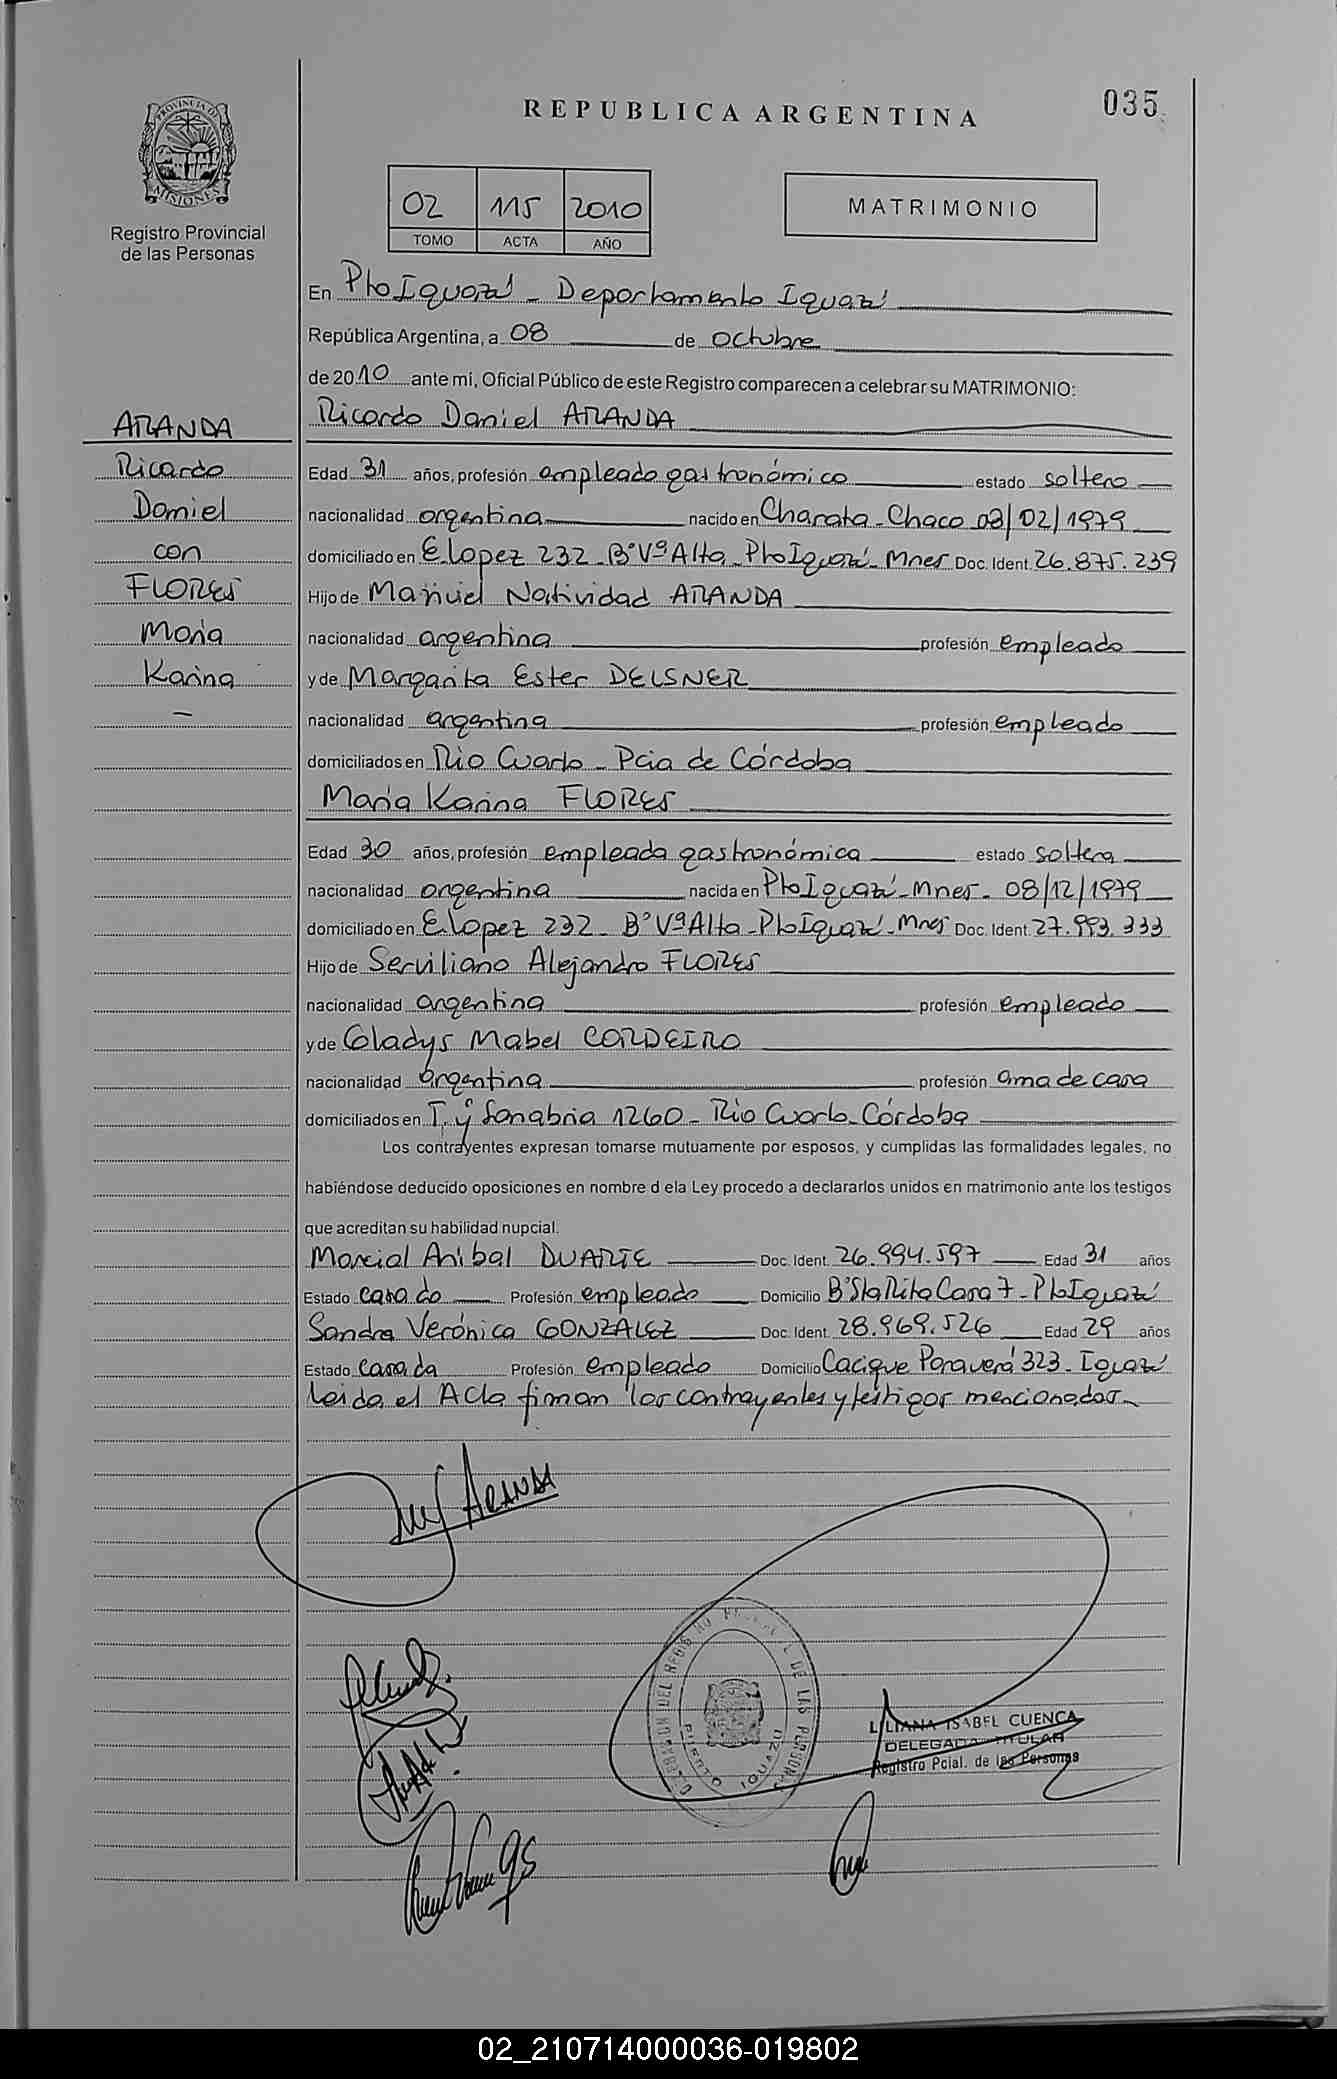 035
REPUBLICA ARGENTINA
PROVINCIA DE
MISIONES
Registro Provincial
de las Personas
02 115 2010
TOMO ACTA AÑO
MATRIMONIO
En Pto Iguazú - Departamento Iguazú
República Argentina, a 08 de octubre
de 2010 ante mi, Oficial Público de este Registro comparecen a celebrar su MATRIMONIO:
ARANDA
Ricardo
Daniel
con
FLORES
María
Karina
-
Ricardo Daniel ARANDA
Edad 31 años, profesión empleado gastronómico estado soltero
nacionalidad argentina nacido en Charata - Chaco 08/02/1979
domiciliado en E. Lopez 232 - B° Vª Alta - Pto Iguazú - Mnes Doc. Ident. 26.875.239
Hijo de Manuel Natividad ARANDA
nacionalidad argentina profesión empleado
y de Margarita Ester DELSNER
nacionalidad argentina profesión empleado
domiciliados en Río Cuarto - Pcia de Córdoba
María Karina FLORES
Edad 30 años, profesión empleada gastronómica estado soltera
nacionalidad argentina nacida en Pto Iguazú - Mnes - 08/12/1979
domiciliado en E. Lopez 232 - B° Vª Alta - Pto Iguazú - Mnes Doc. Ident. 27.993.333
Hijo de Serviliano Alejandro FLORES
nacionalidad argentina profesión empleado
y de Gladys Mabel CORDEIRO
nacionalidad argentina profesión ama de casa
domiciliados en T. y Sanabria 1260 - Río Cuarto - Córdoba
Los contrayentes expresan tomarse mutuamente por esposos, y cumplidas las formalidades legales, no
habiéndose deducido oposiciones en nombre d ela Ley procedo a declararlos unidos en matrimonio ante los testigos
que acreditan su habilidad nupcial.
Marcial Anibal DUARTE Doc. Ident. 26.994.597 Edad 31 años
Estado casado Profesión empleado Domicilio B° Sta Rita Casa 7 - Pto Iguazú
Sandra Verónica GONZALEZ Doc. Ident. 28.969.526 Edad 29 años
Estado casada Profesión empleado Domicilio Cacique Paraverá 323 - Iguazú
Leida el Acta firman los contrayentes y testigos mencionados
ARANDA
PUERTO IGUAZU
LILIANA ISABEL CUENCA
DELEGADA TITULAR
Registro Pcial. de las Personas
02_210714000036-019802